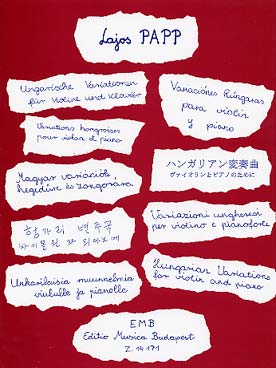 Lajos PAPP
Ungarische Variationen
für Violine und Klavier
Variaciónes Húngaras
para violin
y piano
Variations hongroises
pour violon et piano
ハンガリアン変奏曲
ヴァイオリンとピアノのために
Magyar variációk
hegedűre és zongorára
Variazioni ungheresi
per violino e pianoforte
헝가리 변주곡
바이올린과
Unkarilaisia muunnelmia
viululle ja pianolle
Hungarian Variations
for violin and piano
EMB
Editio Musica Budapest
Z. 14 171